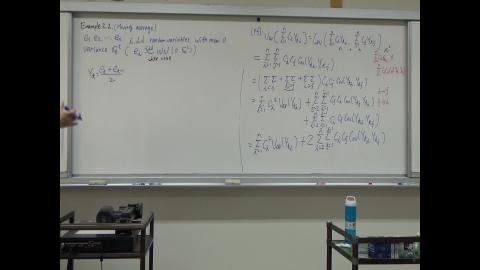 Example 2.2. (Moving average)
e₁, e₂, ... eₙ i.i.d. random variables, with mean 0
variance σₑ² ( eₜ iid WN (0, σₑ²)
white noise
Yₜ = (eₜ + eₜ₋₁)/2
(pf) Var[Σ cᵢ Yₜᵢ] = Cov [Σ cᵢ Yₜᵢ, Σ cⱼ Yₜⱼ]
= Σ Σ cᵢ cⱼ Cov(Yₜᵢ, Yₜⱼ)
= (ΣΣ + ΣΣ + ΣΣ) cᵢ cⱼ Cov(Yₜᵢ, Yₜⱼ)
= Σ cᵢ² Var(Yₜᵢ) + Σ Σ cᵢ cⱼ Cov(Yₜᵢ, Yₜⱼ)
+ Σ Σ cᵢ cⱼ Cov(Yₜᵢ, Yₜⱼ)
= Σ cᵢ² Var(Yₜᵢ) + 2 Σ Σ cᵢ cⱼ Cov(Yₜᵢ, Yₜⱼ)